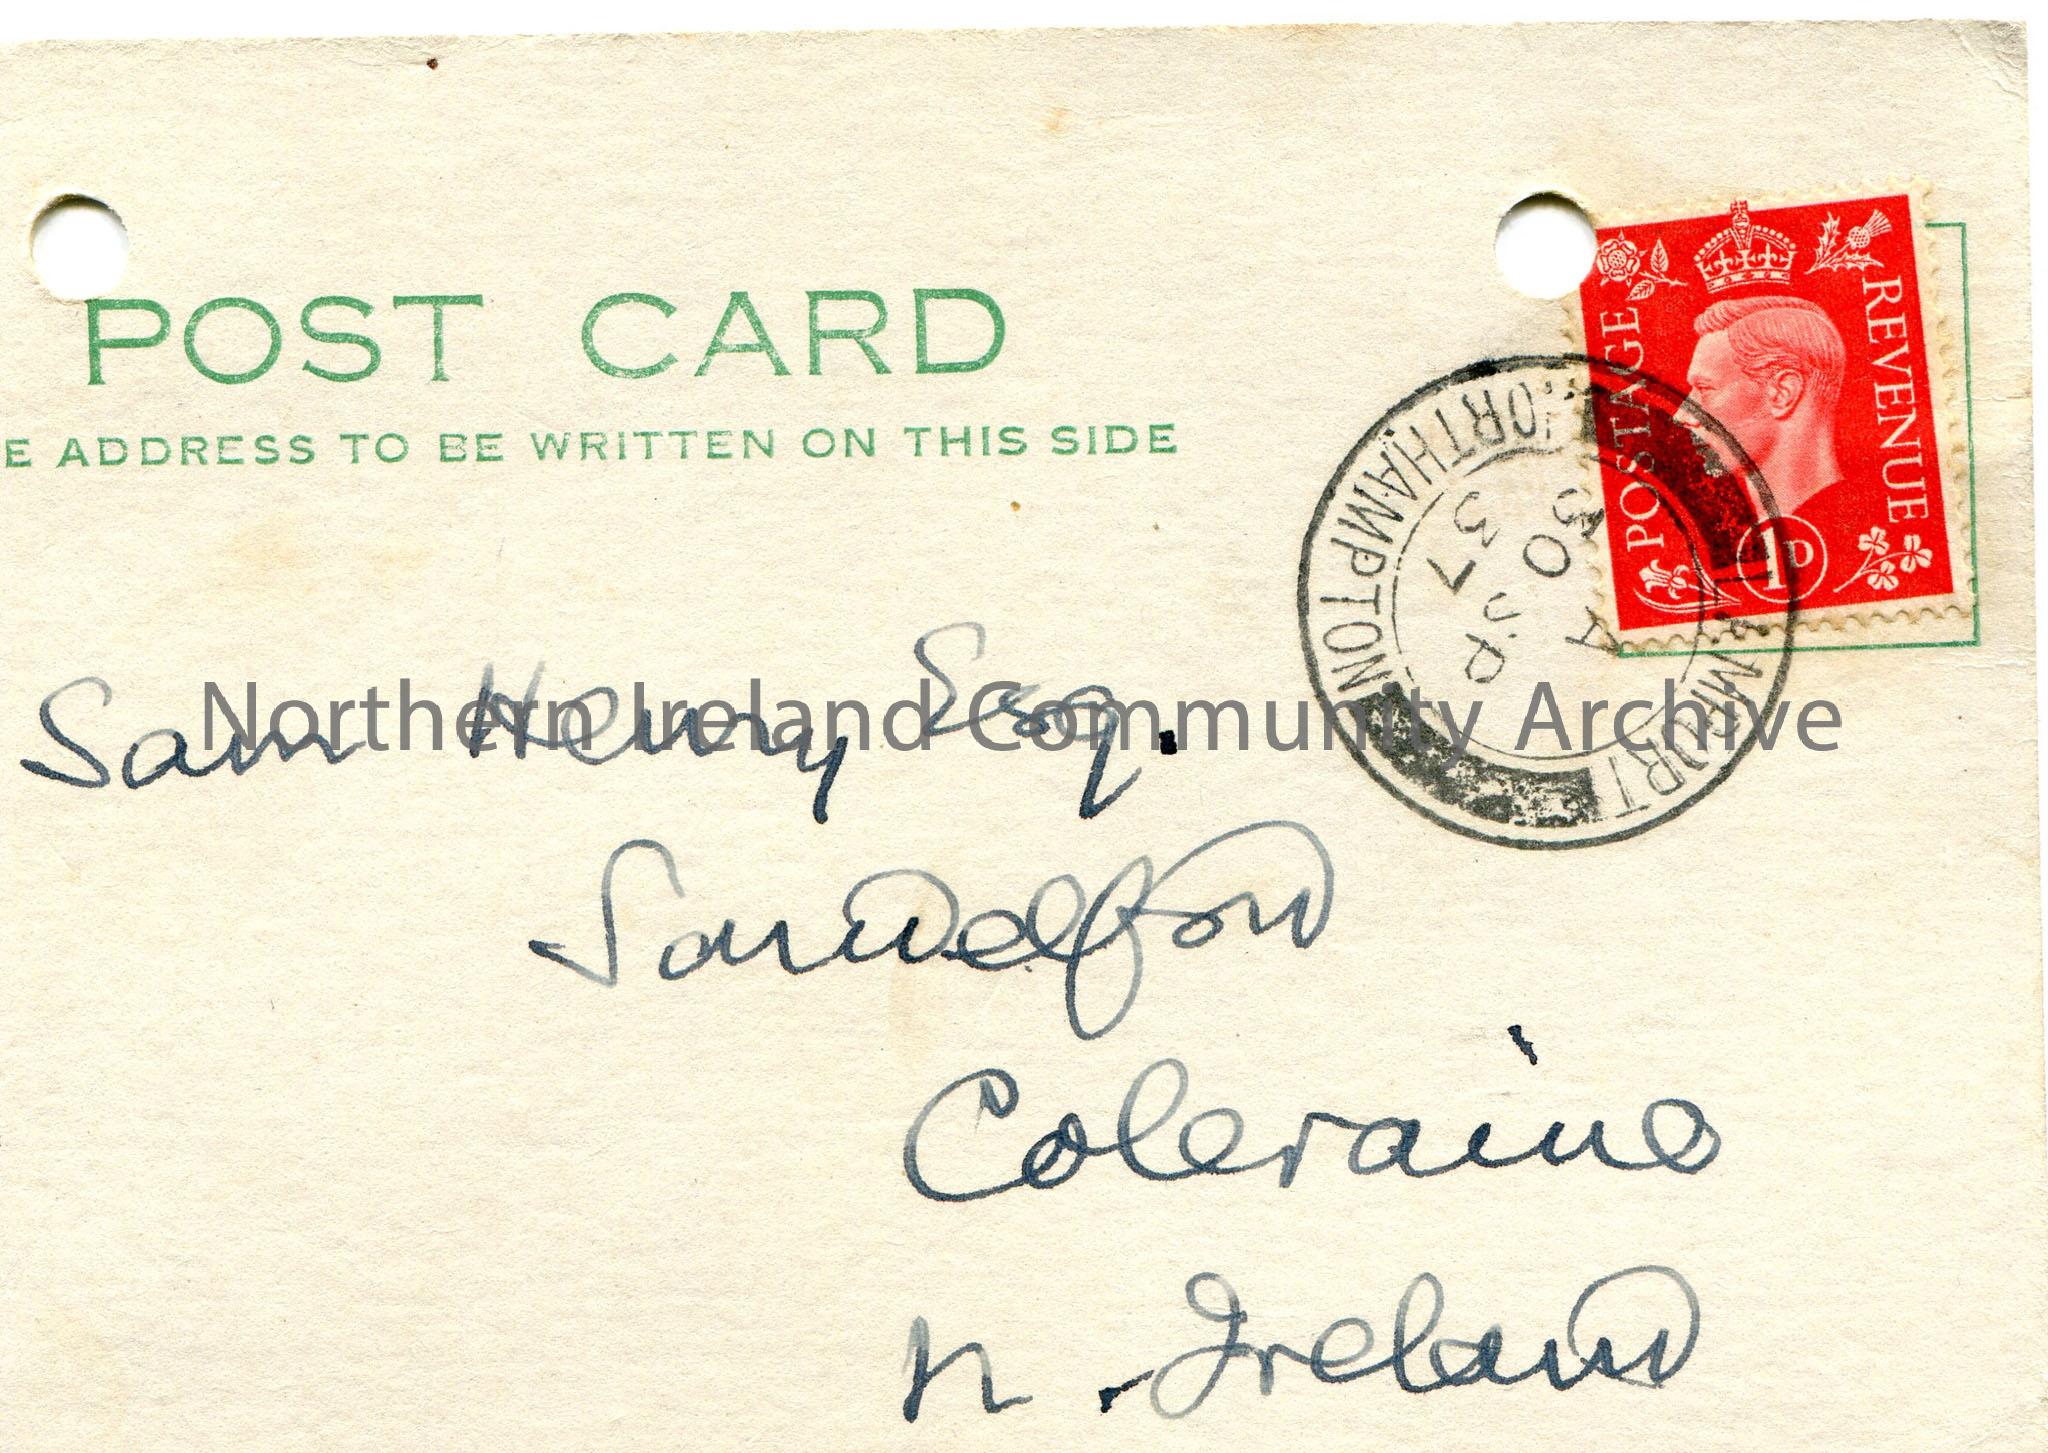 POST CARD
E ADDRESS TO BE WRITTEN ON THIS SIDE
POSTAGE
REVENUE
1D
LAMPORT
NORTHAMPTON
A
30 SP
37
Sam Henry Esq.
Northern Ireland Community Archive
Sandelford
Coleraine
N. Ireland